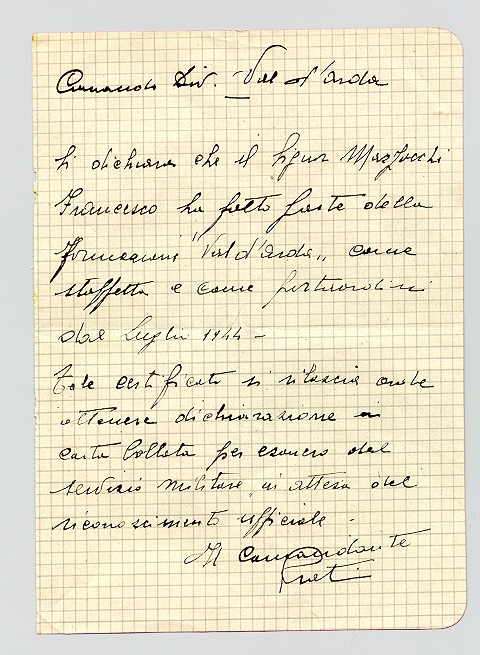 Comando Div. Val d'Arda
Si dichiara che il Signor Mazzocchi
Francesco ha fatto parte della
formazioni "Val d'Arda" come
staffetta e come portaordini
dal Luglio 1944 -
Tale certificato si rilascia onde
ottenere dichiarazione in
carta bollata per esonero dal
servizio militare in attesa del
riconoscimento ufficiale -
Il Comandante
Prati